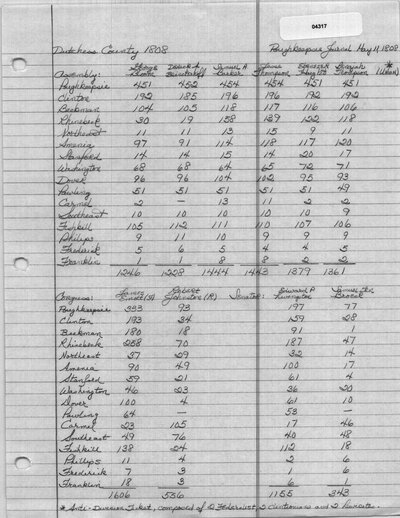 04317
Dutchess County 1808 Poughkeepsie Journal May 11, 1808
George Isaac Samuel A James Ebenezer Josiah *
Assembly: Barker Thompson Thompson
Poughkeepsie 451 452 454 454 451 451
Clinton 192 185 196 196 192 192
Beekman 104 105 118 117 116 106
Rhinebeck 30 19 138 139 122 118
Northeast 11 11 13 15 9 11
Amenia 97 91 114 118 117 120
Stanford 14 14 15 14 20 17
Washington 68 68 64 65 72 71
Dover 96 96 104 102 95 93
Pawling 51 51 51 51 51 49
Carmel 2 — 13 11 2 2
Southeast 10 10 10 10 10 9
Fishkill 105 112 111 110 107 106
Philips 9 11 10 9 9 9
Frederick 5 6 5 4 4 5
Franklin 1 1 8 8 2 2
1246 1228 1444 1443 1379 1361
James Robert Edward P
Congress: Emott (F) Johnston (R) Senator: Livingston
Poughkeepsie 353 93 197 77
Clinton 193 34 159 28
Beekman 180 18 91 1
Rhinebeck 258 70 187 47
Northeast 37 29 32 14
Amenia 90 49 100 17
Stanford 59 21 61 4
Washington 46 23 36 20
Dover 100 4 61 10
Pawling 64 — 53 —
Carmel 23 105 17 46
Southeast 49 76 40 48
Fishkill 138 24 112 18
Phillips 11 4 2 6
Frederick 7 3 1 6
Franklin 18 3 6 1
1606 556 1155 343
* Anti-Division Ticket, composed of 2 Federalist, 2 Clintonians and 2 Lewisites.